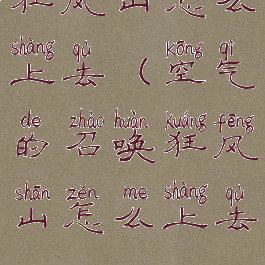 狂风山怎么
shàng qù kōng qì
上去（空气
de zhào huàn kuáng fēng
的召唤狂风
shān zěn me shàng qù
山怎么上去